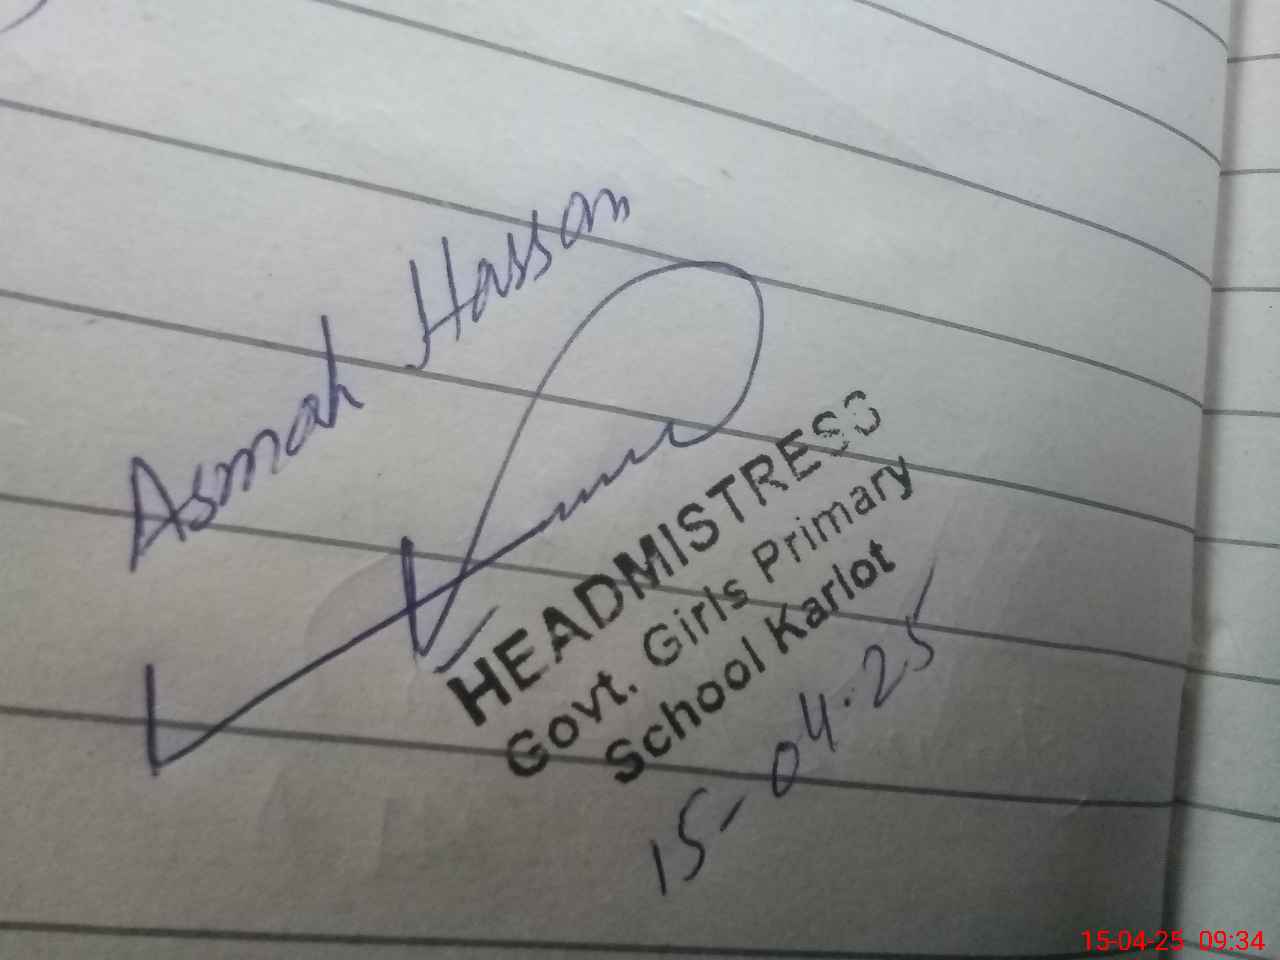 Asmah Hassan
HEADMISTRESS
Govt. Girls Primary
School Karlot
15-04-25
15-04-25 09:34